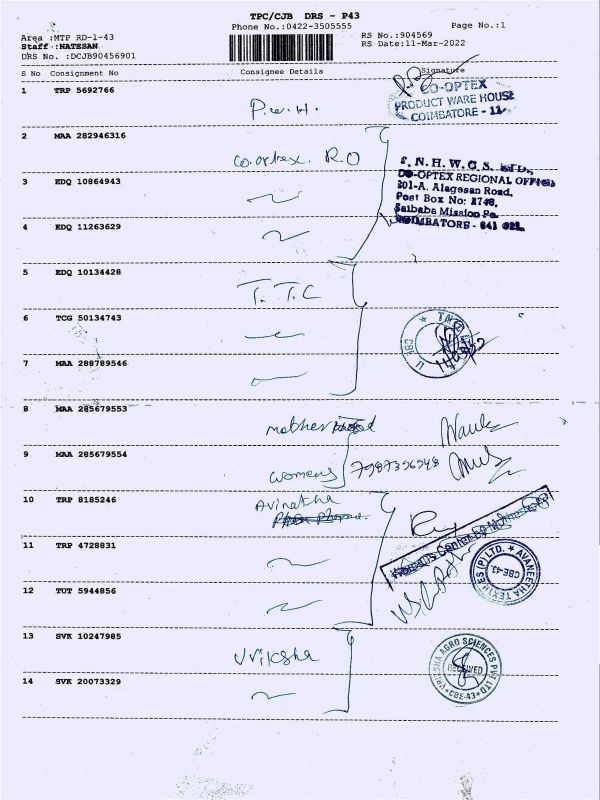 TPC/CJB DRS - P43
Phone No.:0422-3505555
Page No.:1
Area :MTP RD-1-43
RS No.:904569
Staff :NATESAN
RS Date:11-Mar-2022
DRS No. :DCJB90456901
S No Consignment No Consignee Details Signature
1 TRP 5692766
P.W.H.
CO-OPTEX
PRODUCT WARE HOUSE
COIMBATORE - 11
2 MAA 282946316
co.optex. R.O
T. N. H. W. C. S. LTD.,
CO-OPTEX REGIONAL OFFICE
201-A, Alagesan Road,
Post Box No: 2748,
Saibaba Mission Po.
COIMBATORE - 641 021.
3 EDQ 10864943
4 EDQ 11263629
5 EDQ 10134428
T.T.C
6 TCG 50134743
7 MAA 288789546
8 MAA 285679553
9 MAA 285679554
womens
7987356948
10 TRP 8185246
Avinatha
Woman's Center by Motherhood
AVANEETHA TEXTILES (P) LTD. ★
CBE-43
11 TRP 4728831
12 TUT 5944856
13 SVK 10247985
Vriksha
VRIKSHA AGRO SCIENCES PVT LTD
RECEIVED
CBE-43
14 SVK 20073329